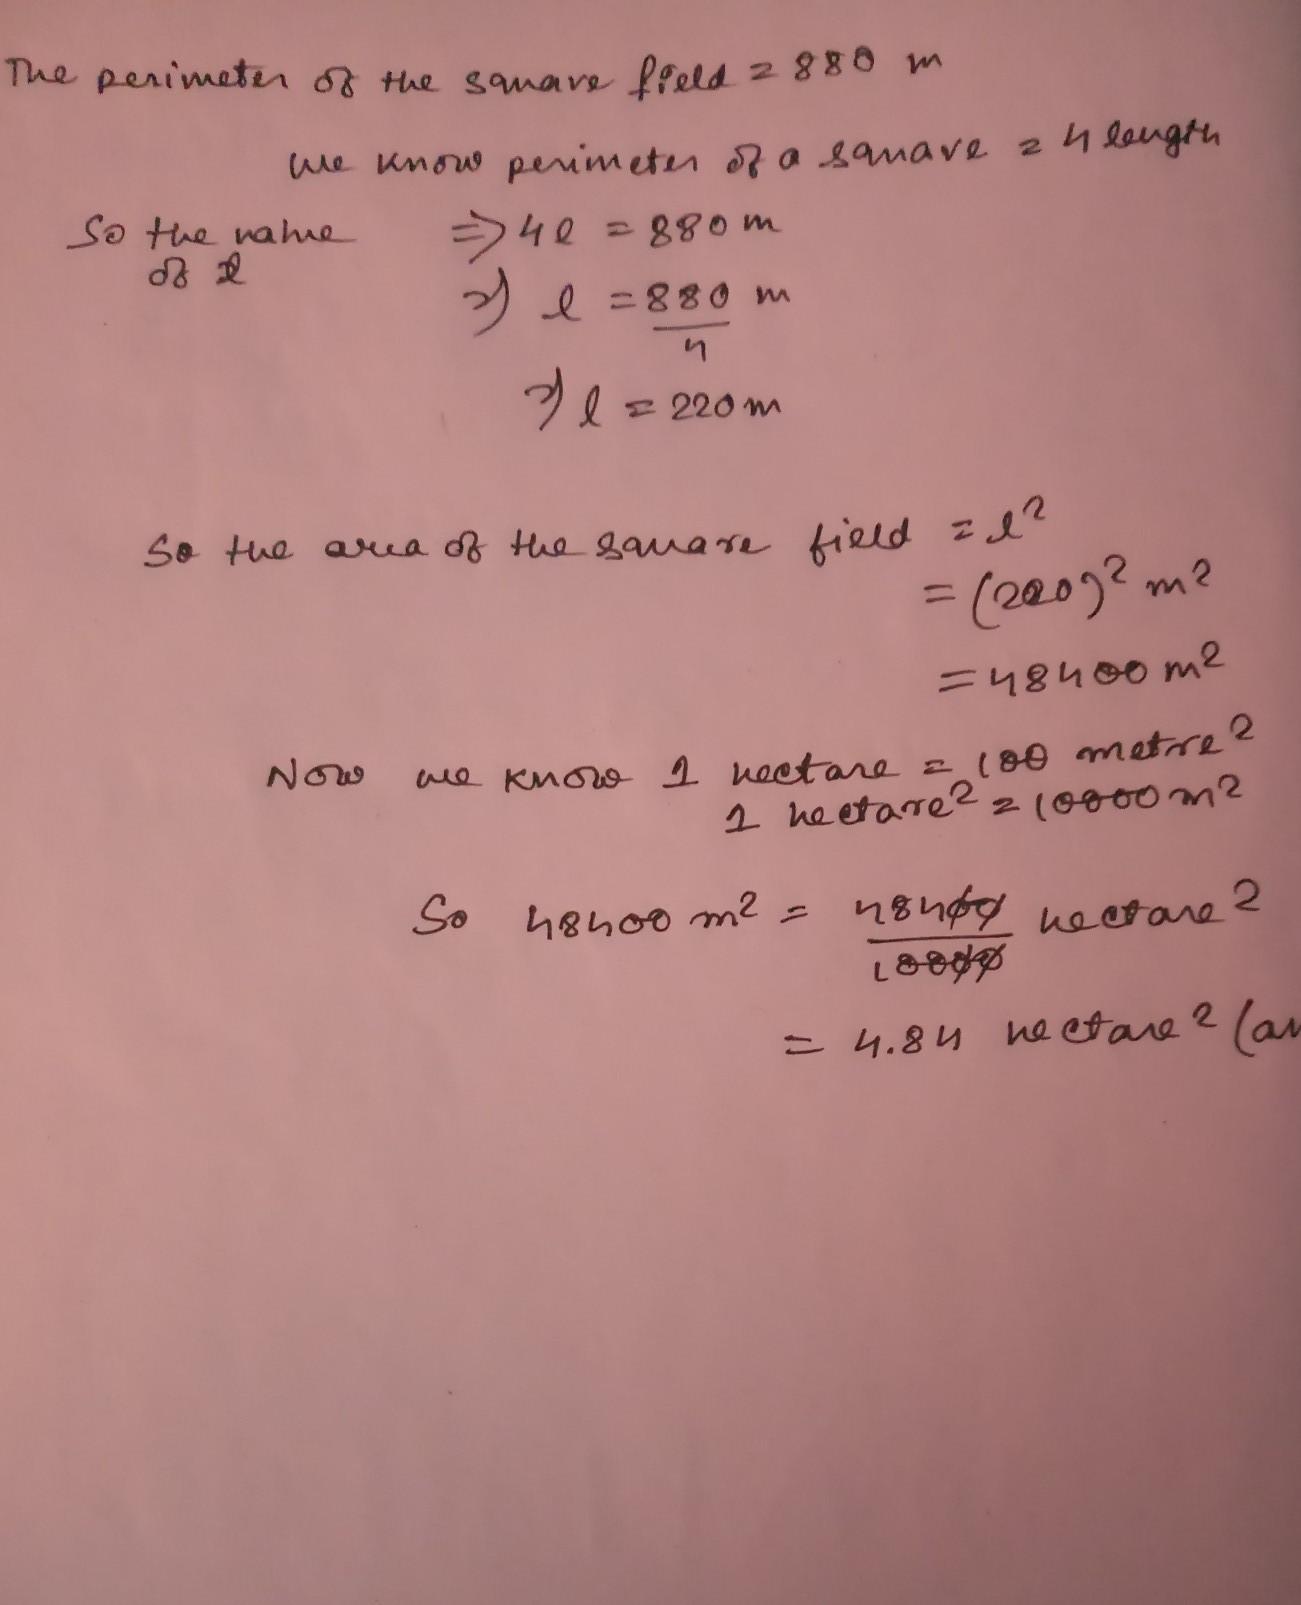 The perimeter of the square field = 880 m
we know perimeter of a square = 4 length
So the value of l
⇒ 4l = 880 m
⇒ l = 880/4 m
⇒ l = 220 m
So the area of the square field = l²
= (220)² m²
= 48400 m²
Now we know 1 hectare = 100 metre²
1 hectare² = 10000 m²
So 48400 m² = 48400/10000 hectare²
= 4.84 hectare² (an